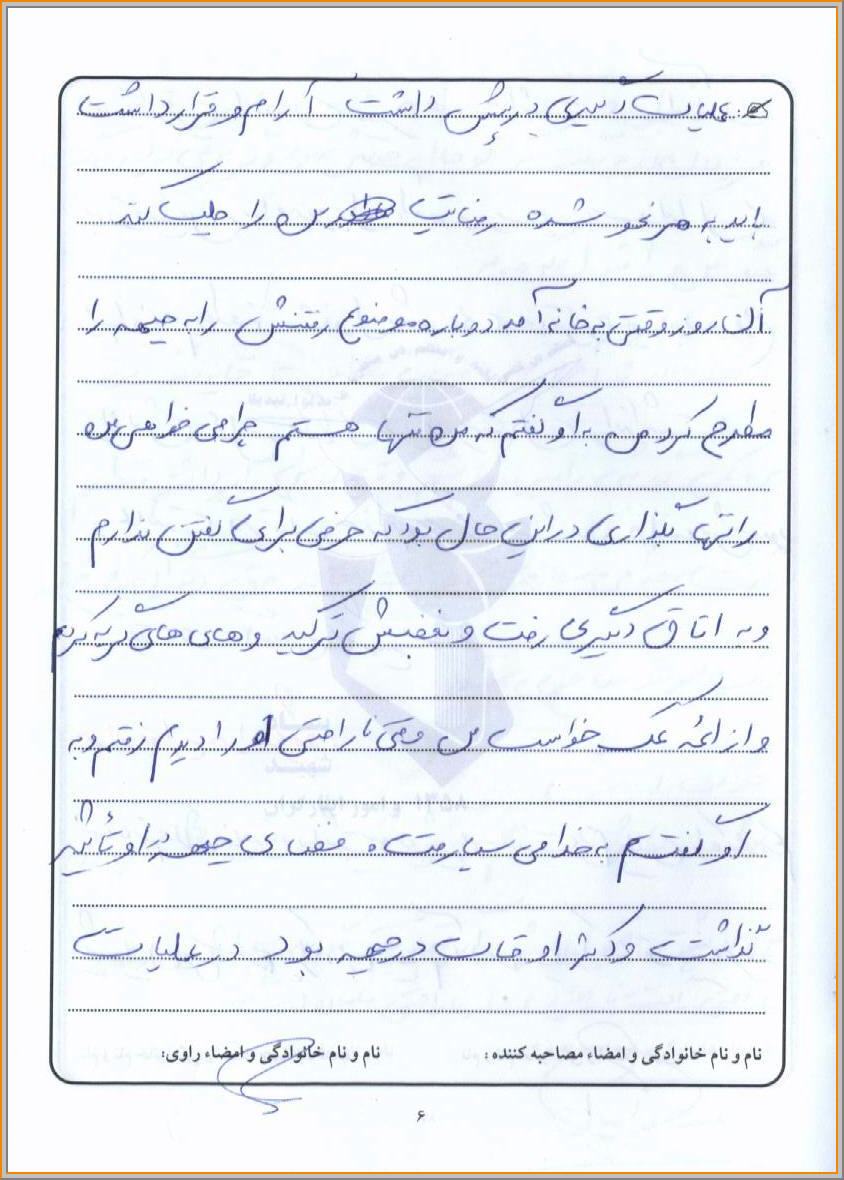 عملیات دیگری در پیش داشت آرام و قرار نداشت
باید به هر نحو شده رضایت من را جلب کند
آن روز وقتی به خانه آمد دوباره موضوع رفتنش را به جبهه را
مطرح کرد من به او گفتم که من تنها هستم چرا می خواهی من
را تنها بگذاری در این حال بود که حرفی برای گفتن ندارم
و به اتاق دیگری رفت و بغضش ترکید و های های گریه کرد
و از ائمه کمک خواست من وقتی ناراحتی او را دیدم رفتم و به
او گفتم به خدا می سپارمت فضای جبهه در او تأثیر
گذاشت و اکثر اوقات در جبهه بود در عملیات
نام و نام خانوادگی و امضاء مصاحبه کننده : نام و نام خانوادگی و امضاء راوی:
۶